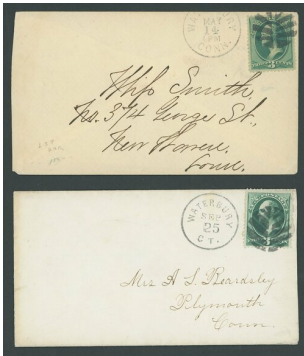 WATERBURY
MAY
14
CONN.
3
Miss Smith,
No. 374 George St.,
New Haven,
Conn.
WATERBURY
SEP
25
CT.
3
Mrs A. S. Beardsley
Plymouth
Conn.